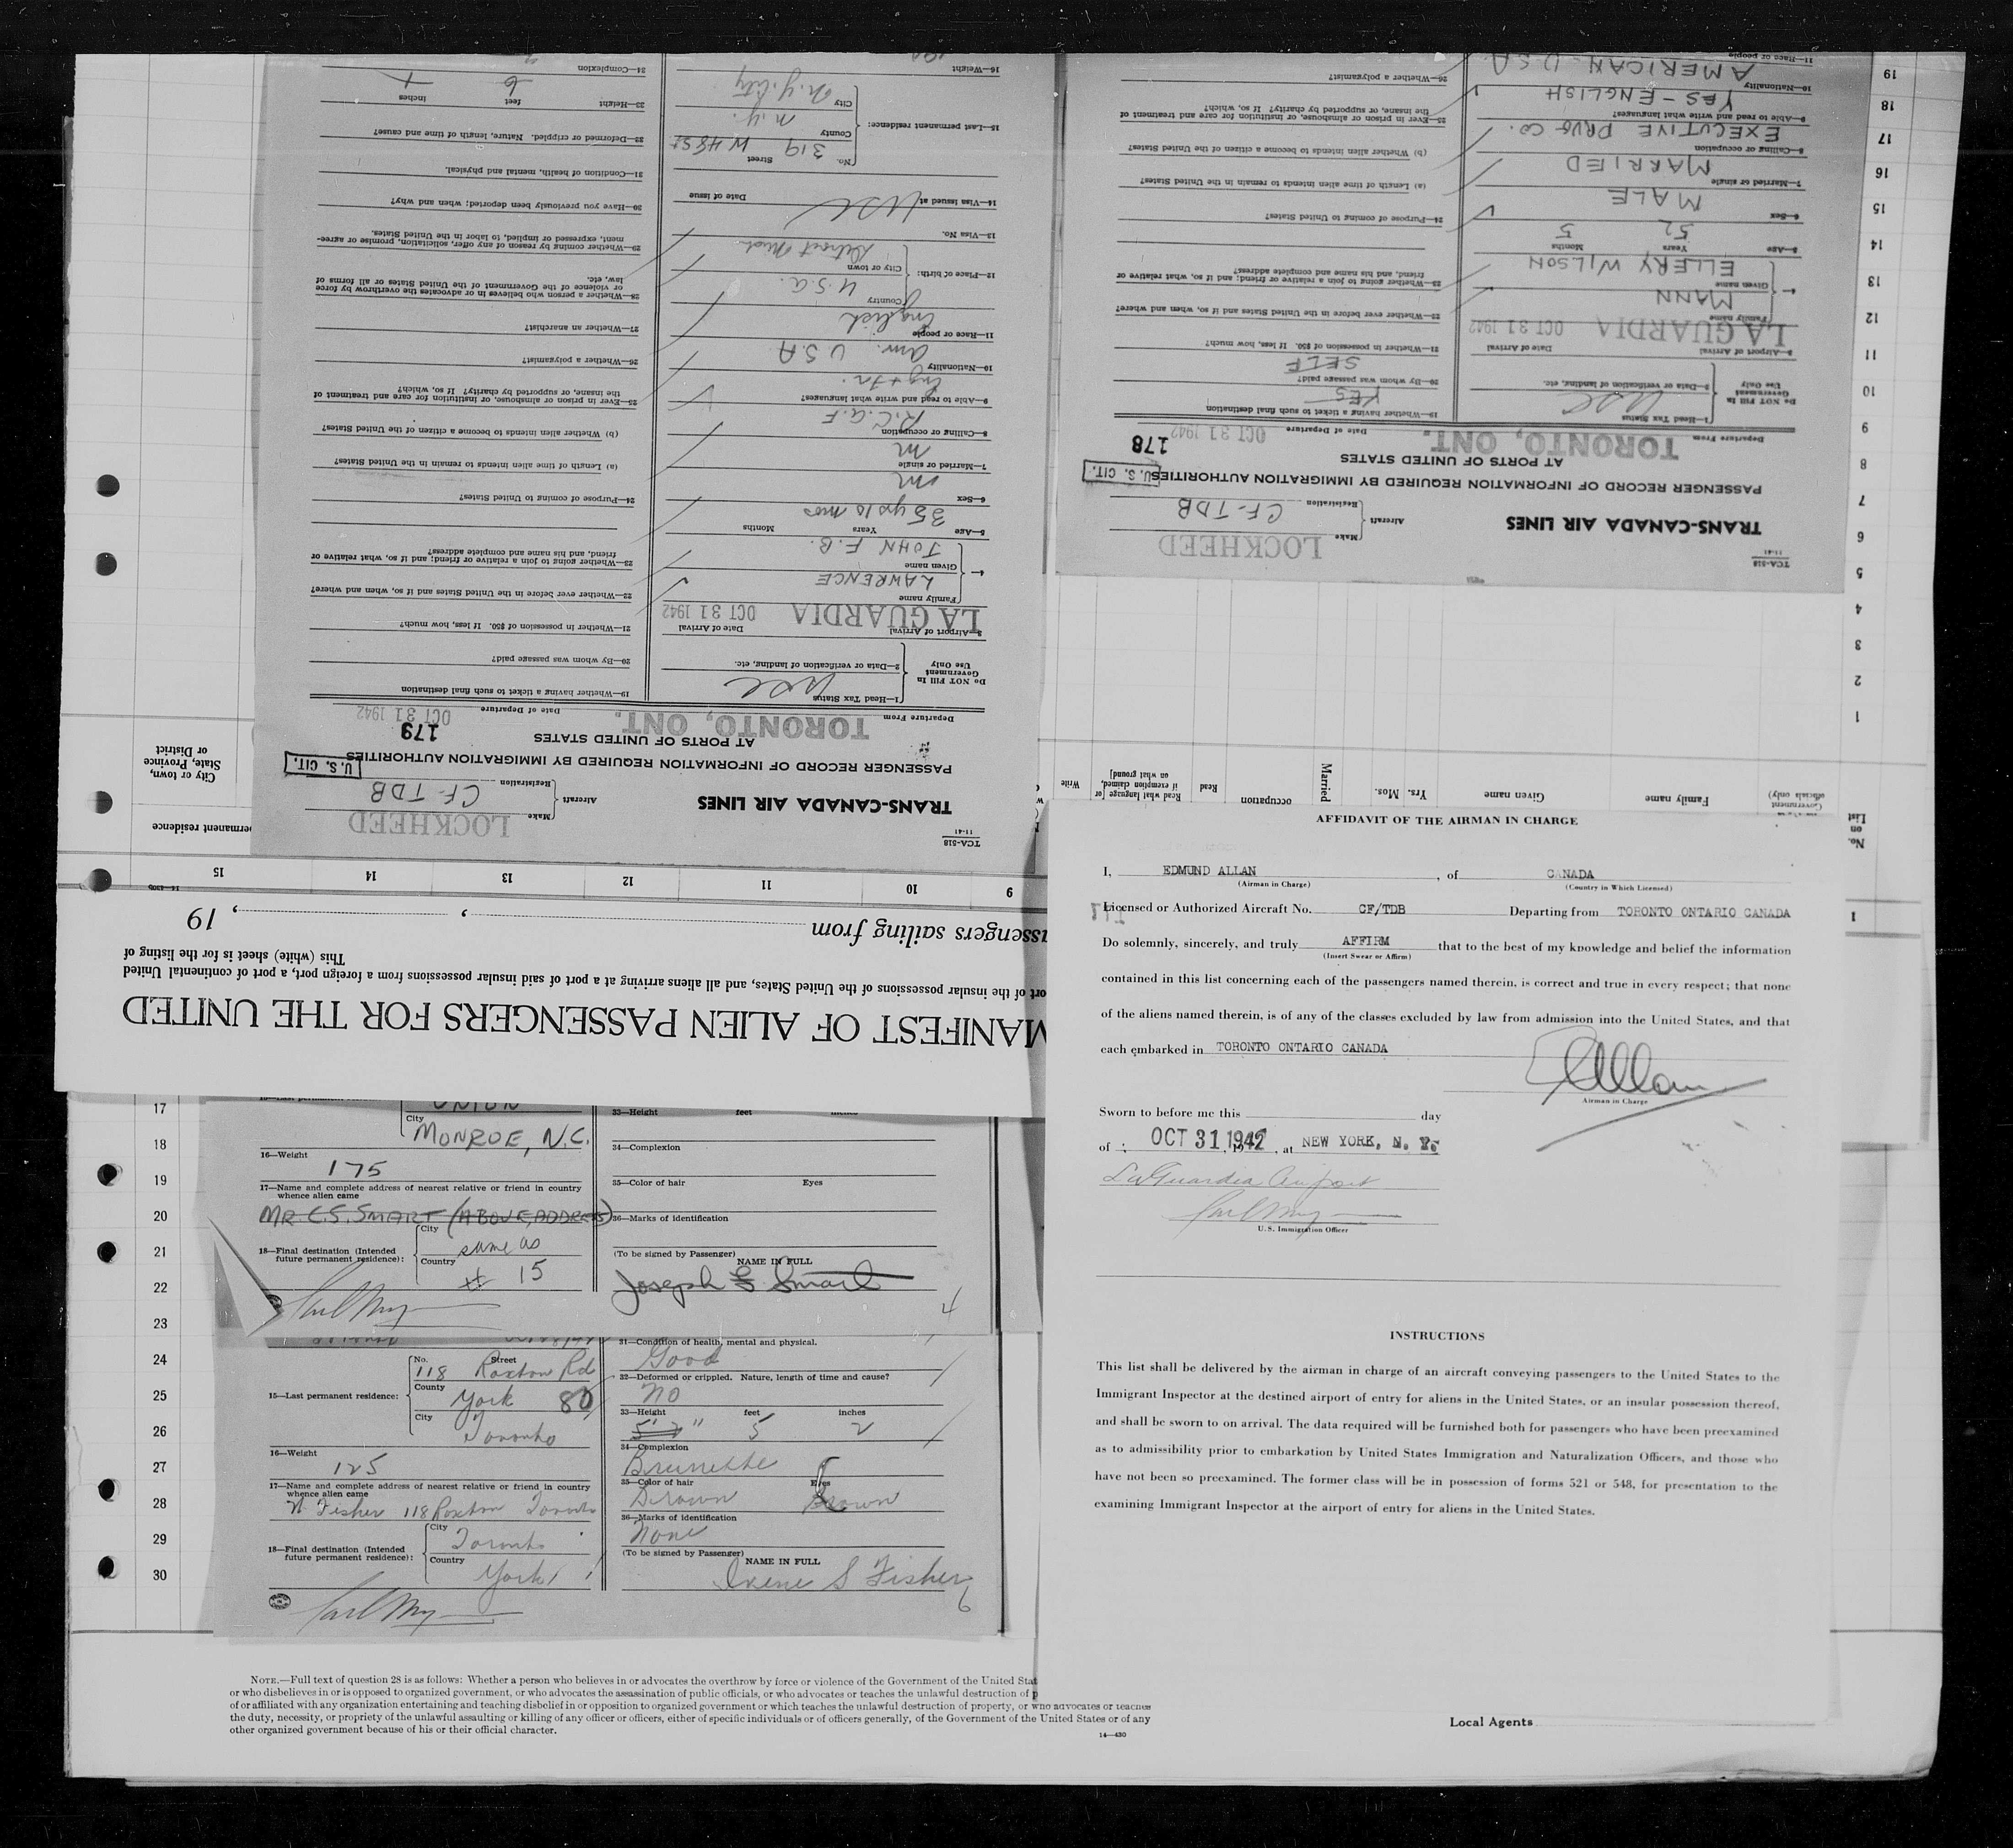 TCA-518
11-41
TRANS-CANADA AIR LINES
Aircraft
Make LOCKHEED
Registration CF-TDB
PASSENGER RECORD OF INFORMATION REQUIRED BY IMMIGRATION AUTHORITIES
U. S. CIT.
AT PORTS OF UNITED STATES
179
Departure From TORONTO, ONT. Date of Departure OCT 31 1942
Do NOT FILL In Government Use Only
1—Head Tax Status USC
2—Data or verification of landing, etc.
3—Airport of Arrival LA GUARDIA Date of Arrival OCT 31 1942
4— Family name LAWRENCE
Given name JOHN F.B.
5—Age 35 yrs 10 mos Years Months
6—Sex M
7—Married or single M
8—Calling or occupation R.C.A.F.
9—Able to read and write what languages? Eng + Fr.
10—Nationality Am. U.S.A
11—Race or people English
12—Place of birth: Country U.S.A.
City or town Detroit Mich
13—Visa No.
14—Visa Issued at USC Date of issue
15—Last permanent residence: No. 319 Street W 48 St
County N.Y.
City N.Y. City
16—Weight 190
19—Whether having a ticket to such final destination
20—By whom was passage paid?
21—Whether in possession of $50. If less, how much?
22—Whether ever before in the United States and if so, when and where?
23—Whether going to join a relative or friend; and if so, what relative or friend, and his name and complete address?
24—Purpose of coming to United States?
(a) Length of time alien intends to remain in the United States?
(b) Whether alien intends to become a citizen of the United States?
25—Ever in prison or almshouse, or institution for care and treatment of the insane, or supported by charity? If so, which?
26—Whether a polygamist?
27—Whether an anarchist?
28—Whether a person who believes in or advocates the overthrow by force or violence of the Government of the United States or all forms of law, etc.
29—Whether coming by reason of any offer, solicitation, promise or agreement, expressed or implied, to labor in the United States.
30—Have you previously been deported; when and why?
31—Condition of health, mental and physical.
32—Deformed or crippled. Nature, length of time and cause?
33—Height 6 feet 1 inches
34—Complexion
TCA-518
11-41
TRANS-CANADA AIR LINES
Aircraft
Make LOCKHEED
Registration CF-TDB
PASSENGER RECORD OF INFORMATION REQUIRED BY IMMIGRATION AUTHORITIES
U. S. CIT.
AT PORTS OF UNITED STATES
178
Departure From TORONTO, ONT. Date of Departure OCT 31 1942
Do NOT FILL In Government Use Only
1—Head Tax Status USC
2—Data or verification of landing, etc.
3—Airport of Arrival LA GUARDIA Date of Arrival OCT 31 1942
4— Family name MANN
Given name ELLERY WILSON
5—Age 52 Years 5 Months
6—Sex MALE
7—Married or single MARRIED
8—Calling or occupation EXECUTIVE DRUG CO.
9—Able to read and write what languages? YES - ENGLISH
10—Nationality AMERICAN - U.S.A.
11—Race or people
19—Whether having a ticket to such final destination YES
20—By whom was passage paid? SELF
21—Whether in possession of $50. If less, how much?
22—Whether ever before in the United States and if so, when and where?
23—Whether going to join a relative or friend; and if so, what relative or friend, and his name and complete address?
24—Purpose of coming to United States?
(a) Length of time alien intends to remain in the United States?
(b) Whether alien intends to become a citizen of the United States?
25—Ever in prison or almshouse, or institution for care and treatment of the insane, or supported by charity? If so, which?
26—Whether a polygamist?
19
18
17
16
15
14
13
12
11
10
9
8
7
6
5
4
3
2
1
No. on List
Government officials only)
Family name
Given name
Yrs. Mos.
Married
occupation
Read
Read what language [or if exemption claimed, on what ground]
Write
permanent residence
City or town, State, Province or District
9 10 11 12 13 14 15
1
MANIFEST OF ALIEN PASSENGERS FOR THE UNITED
ort of the insular possessions of the United States, and all aliens arriving at a port of said insular possessions from a foreign port, a port of continental United
This (white) sheet is for the listing of
ssengers sailing from , , 19
17
18
19
20
21
22
23
24
25
26
27
28
29
30
UNION
City MONROE, N.C.
16—Weight 175
17—Name and complete address of nearest relative or friend in country whence alien came
MR. C.S. SMART (ABOVE ADDRESS)
18—Final destination (Intended future permanent residence): City same as
Country # 15
33—Height feet inches
34—Complexion
35—Color of hair Eyes
36—Marks of identification
(To be signed by Passenger)
NAME IN FULL
Joseph E Smart
4
15—Last permanent residence: No. 118 Street Roxton Rd
County York 80
City Toronto
16—Weight 125
17—Name and complete address of nearest relative or friend in country whence alien came
N Fisher 118 Roxton Toronto
18—Final destination (Intended future permanent residence): City Toronto
Country York
31—Condition of health, mental and physical.
Good
32—Deformed or crippled. Nature, length of time and cause?
No
33—Height feet inches
5' 2" 5 2
34—Complexion
Brunette
35—Color of hair Eyes
Brown Brown
36—Marks of identification
None
(To be signed by Passenger)
NAME IN FULL
Irene S Fisher
6
NOTE.—Full text of question 28 is as follows: Whether a person who believes in or advocates the overthrow by force or violence of the Government of the United Stat
or who disbelieves in or is opposed to organized government, or who advocates the assassination of public officials, or who advocates or teaches the unlawful destruction of p
of or affiliated with any organization entertaining and teaching disbelief in or opposition to organized government or which teaches the unlawful destruction of property, or who advocates or teaches
the duty, necessity, or propriety of the unlawful assaulting or killing of any officer or officers, either of specific individuals or of officers generally, of the Government of the United States or of any
other organized government because of his or their official character.
14—430
AFFIDAVIT OF THE AIRMAN IN CHARGE
I, EDMUND ALLAN, of CANADA
(Airman in Charge) (Country in Which Licensed)
Licensed or Authorized Aircraft No. CF/TDB Departing from TORONTO ONTARIO CANADA
Do solemnly, sincerely, and truly AFFIRM that to the best of my knowledge and belief the information
(Insert Swear or Affirm)
contained in this list concerning each of the passengers named therein, is correct and true in every respect; that none
of the aliens named therein, is of any of the classes excluded by law from admission into the United States, and that
each embarked in TORONTO ONTARIO CANADA
E Allan
Airman in Charge
Sworn to before me this day
of OCT 31 1942, at NEW YORK, N. Y.
LaGuardia Airport
U. S. Immigration Officer
INSTRUCTIONS
This list shall be delivered by the airman in charge of an aircraft conveying passengers to the United States to the
Immigrant Inspector at the destined airport of entry for aliens in the United States, or an insular possession thereof,
and shall be sworn to on arrival. The data required will be furnished both for passengers who have been preexamined
as to admissibility prior to embarkation by United States Immigration and Naturalization Officers, and those who
have not been so preexamined. The former class will be in possession of forms 521 or 548, for presentation to the
examining Immigrant Inspector at the airport of entry for aliens in the United States.
Local Agents